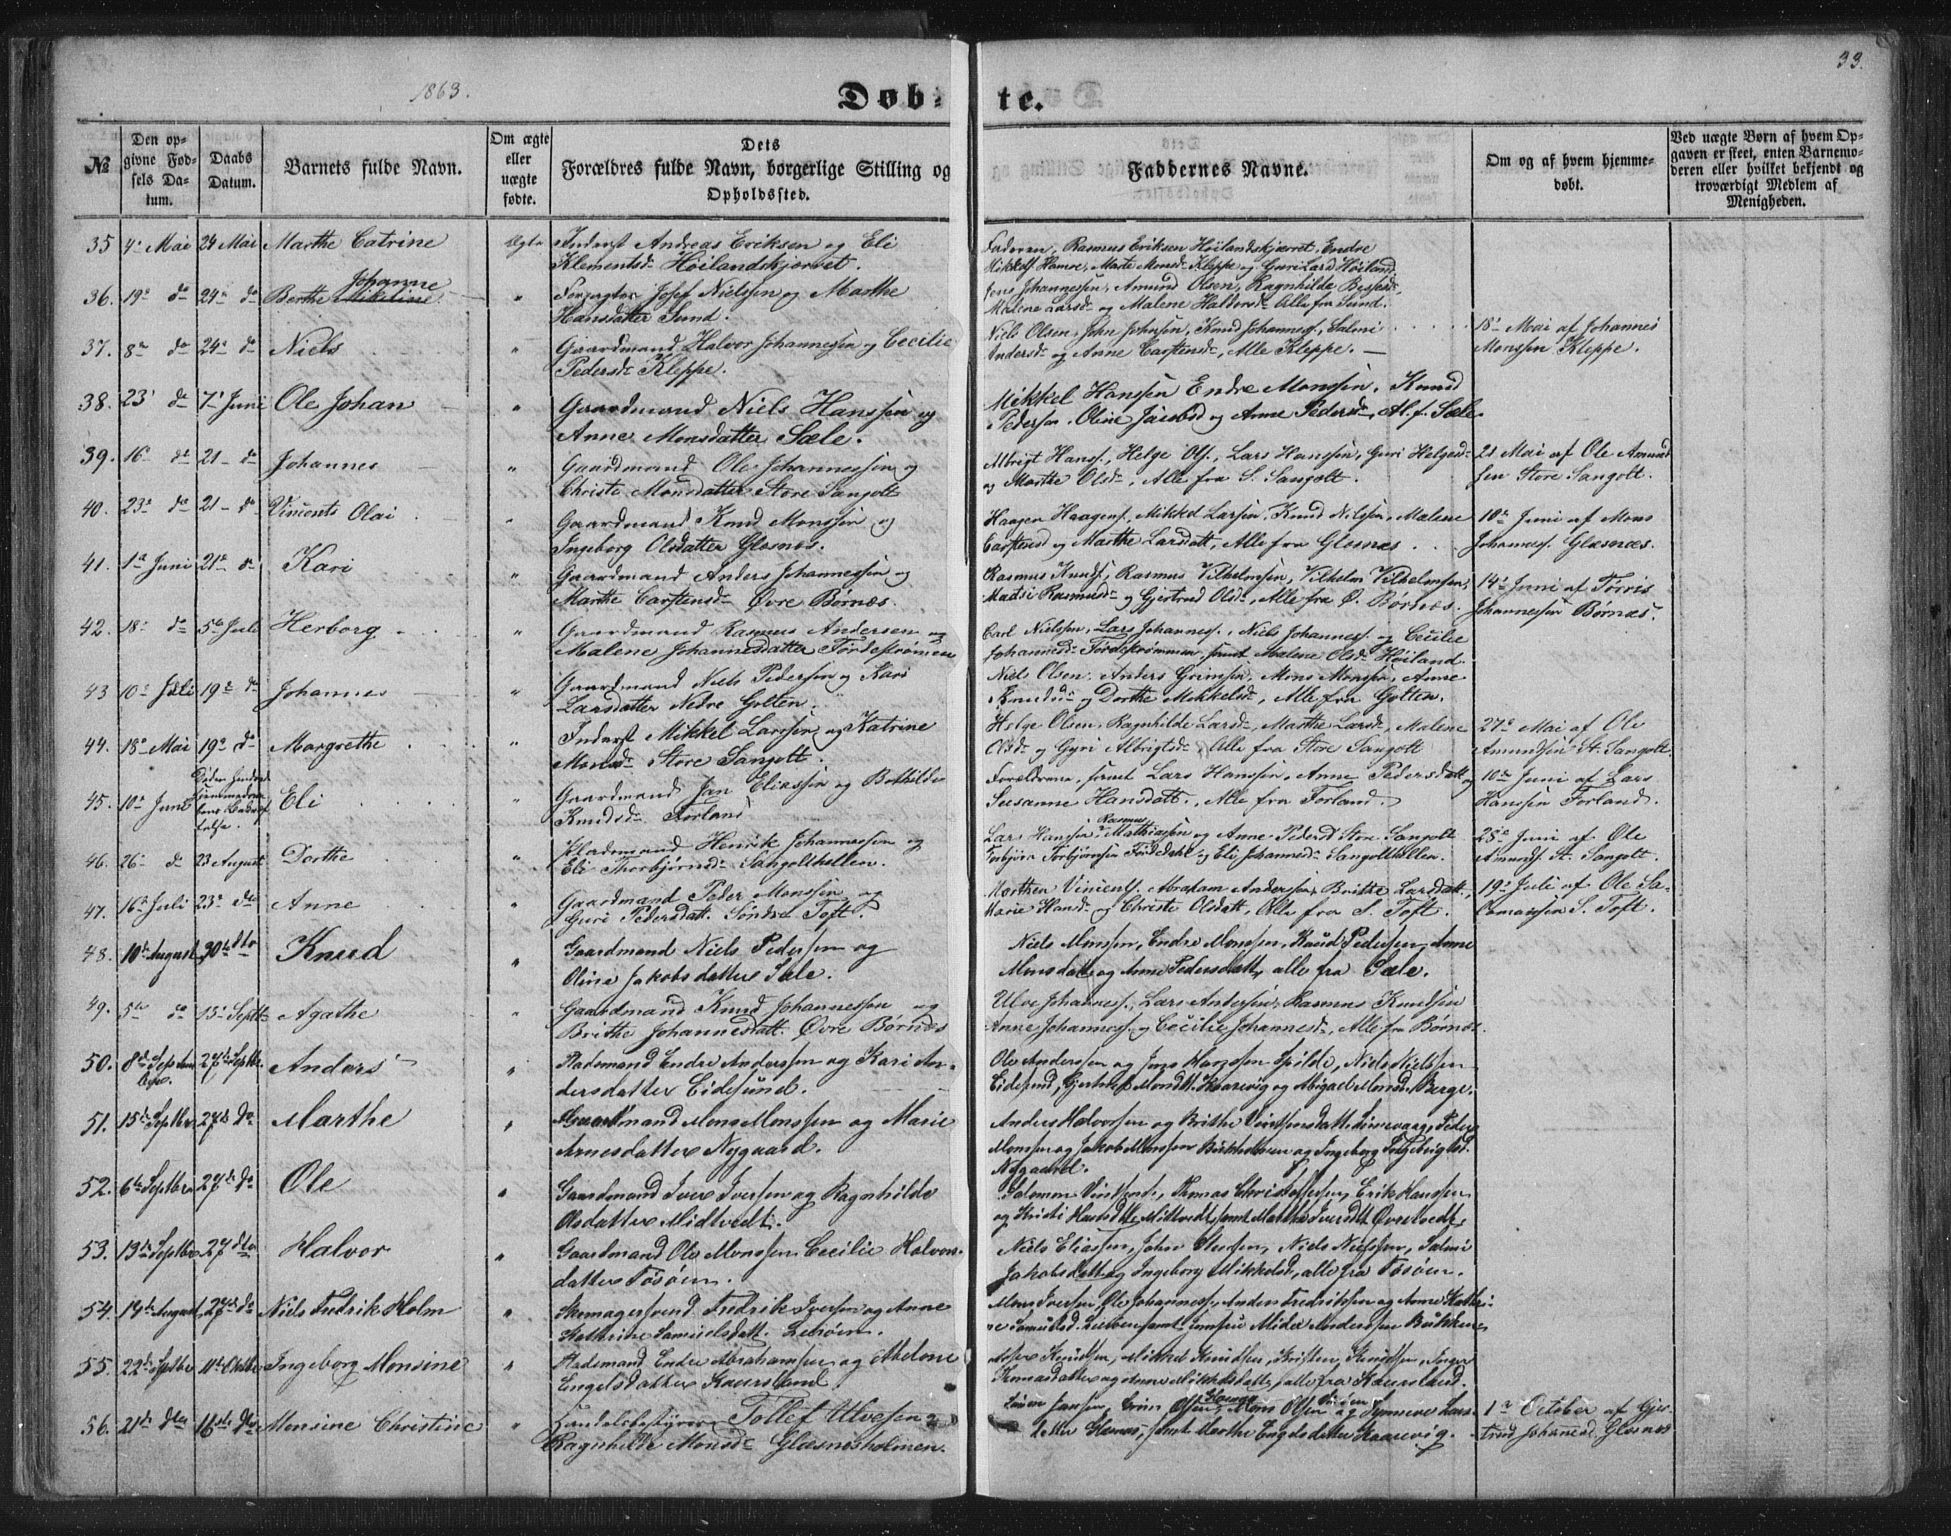 1863.
33.
Døbte.
№
Den opgivne Fødsels Datum.
Daabs Datum.
Barnets fulde Navn.
Om ægte eller uægte fødte.
Dets Forældres fulde Navn, borgerlige Stilling og Opholdssted.
Faddernes Navne.
Om og af hvem hjemmedøbt.
Ved uægte Børn af hvem Opgaven er skeet, enten Barnemoderen eller hvilket bekjendt og troværdigt Medlem af Menigheden.
35 4de Mai 24 Mai Marthe Catrine Ægte Inderst Andreas Eriksen og Eli
Klementsdr Høilandskjærret.
Faderen, Rasmus Eriksen Høilandskjærret, Endre
Hamre, Marte Monsdr Kleppe og Guri Larsd Høiland
36. 19de do 24de do Berthe Johanne Mikeline " Forpagter Josef Nielssen og Marthe
Hansdatter Sund.
Jens Johannessen, Amund Olsen, Ragnhilde
Malene Larsdr og Malene Haldorsdr Alle fra Sund.
37. 8de do 24de do Niels " Gaardmand Halvor Johannessen og Cecilie
Pedersdr Kleppe.
Niels Olsen, John Johnsen, Knud Johanness., Salmi
Andersdr og Anne Carstensdr, Alle Kleppe.
18de Mai af Johannes
Monssen Kleppe.
38. 23de do 7de Juni Ole Johan " Gaardmand Niels Hanssen og
Anne Monsdatter Sæle.
Mikkel Hanssen Endre Monssen, Knud
Pederssen, Oline Jacobsd og Anne Pedersdr, Al. f. Sæle.
39. 16de do 21 do Johannes " Gaardmand Ole Johannessen og
Christi Monsdatter Store Sangolt
Albrigt Hanss, Helge Ols., Lars Hanssen, Guri Helgesdr
og Marthe Olsdr, Alle fra S. Sangolt.
21 Mai af Ole Amundsen Store Sangolt.
40. 23de do 21 do Vincents Olai " Gaardmand Knud Monssen og
Ingeborg Olsdatter Glesnes.
Haagen Haagens., Mikkel Larsen, Knud Nilssen, Malene
Carstensd og Marthe Larsdatt, Alle fra Glesnæs
10de Juni af Mons
Johanness. Glæsnæs.
41. 1de Juni 21de do Kari " Gaardmand Anders Johannessen og
Marthe Carstensdr Øvre Børnæs.
Rasmus Knuds., Rasmus Vilhelmsen, Vilhelm Vilhelmsen,
Madsi Rasmusdr og Gjertrud Olsdr, Alle fra Ø. Børnæs.
14de Juni af Tørris
Johannessen Børnæs.
42. 18de do 5te Juli Herborg " Gaardmand Rasmus Andersen og
Malene Johannesdatter Førdestrømen
Carl Nielssen, Lars Johanness., Niels Johanness. og Cecilie
Johannesdr Førdestrømmen, samt Malene Olsdr Høiland.
43 10de Juli 19de do Johannes " Gaardmand Niels Pederssen og Kari
Larsdatter Nedre Golten.
Niels Olsen, Anders Grimsen, Mons Monsen, Anne
Knudsdr og Dorthe Mikkelsdr, Alle fra Golten.
44. 18de Mai 19de do Margrethe " Inderst Mikkel Larssen og Katrine
Monsdr Store Sangolt.
Helge Olsen, Ragnhilde Larsdr, Marthe Larsdr, Malene
Olsdr og Gyri Albrigtsdr, Alle fra Store Sangolt
27de Mai af Ole
Amundsen St. Sangolt.
45. 10de Juni Eli " Gaardmand Jan Eliassen og Bothilde
Knudsdr Forland
Forældrene, samt Lars Hanssen, Anne Pedersdatt og
Susanne Hansdatt., Alle fra Forland.
10de Juni af Lars
Hanssen Forland.
46. 26de do 23 August Dorthe " Pladsmand Henrik Johannessen og
Eli Thorbjørnsdr Sangolthellen.
Lars Hanssen, Rasmus Mathiassen og Anne Pedersd Store Sangolt
Torbjørn Torbjørnsen Førdedahl og Eli Johannesdr Sangolthellen.
25de Juni af Ole
Amunds. St. Sangolt.
47. 16de Juli 23de dto Anne " Gaardmand Peder Monssen og
Guri Pedersdatt. Søndre Toft.
Morthen Vincents., Abraham Anderssen, Brithe Larsdatt,
Marie Hansdr og Christe Olsdatt, Alle fra S. Toft.
19de Juli af Ole Sa-
S. Toft.
48. 10de August 30te dto Knud " Gaardmand Niels Pedersen og
Oline Jakobsdatter Sæle.
Niels Monssen, Endre Monssen, Knud Pedersen, Anne
Monsdatt og Anne Pedersdatt, alle fra Sæle.
49. 5te do 13de Septr Agathe " Gaardmand Knud Johannessen og
Brithe Johannesdatt. Øvre Børnæs
Ulve Johanness., Lars Andersen, Rasmus Knudsen
Anne Johanness. og Cecilie Johannesdr, Alle fra Børnæs.
50. 8de September 27de Septbr. Anders " Pladsmand Endre Anderssen og Kari An-
dersdatter Eidesund.
Ole Anderssen og Jens Hanssen Spilde, Niels Nielsen
Eidesund, Gjertrud Monsdt. Kaarevig og Abigael Monsd. Berge.
51. 15de Septbr 27de do Marthe " Gaardmand Mons Monssen og Marie
Arnesdatter Nygaard.
Anders Halvorssen og Brithe, Peder
Monssen og Jakob Monssen og Ingeborg
Nygaard.
52. 6te Septbr 27de do Ole " Gaardmand Iver Iversen og Ragnhilde
Olsdatter Midtvedt.
Salomon Vintsents., Thomas Christoffersen, Erik Hanssen
og Kristi Hansdtr Midtvedt, samt Marthe Iversdtt Øvretvedt.
53. 13de Septbr 27 dto Halvor " Gaardmand Ole Monssen, Cecilie Halvors-
datter Tøsøen.
Niels Eliassen, John, Niels Nielssen, Salmi
Jakobsdatt og Ingeborg Mikkelsd, alle fra Tøsøen.
54. 14de August 27de do Niels Fredrik Holm " Fredrik Iversen og Anne
Kathrine Samuelsdatt. Lerøen.
Mons Iversen, Ole Johanness., Anders Fredrikssen og Anne Kathri-
ne Samuelsd.
55. 22de Septbr 11te Oktbr Ingeborg Monsine " Pladsmand Endre Abrahamsen og Madone
Engelsdatter Kausland.
Knudsen, Mikkel Knudsen, Kristen Knudsen, Inger
Thomasdatter og Anne Mikkelsdatt, alle fra Kausland.
56. 21de dto 18de dto Monsine Christine " Handelsbestyrer Tollef Ulvesen og
Ragnhilde Monsdr Glæsnesholmen.
Mons Olsen og Synneve Lars-
datter Glesnæs, samt Marthe Engelsdatter Kaarevig.
1de October af Gjer-
trud Johannesd. Glesnæs